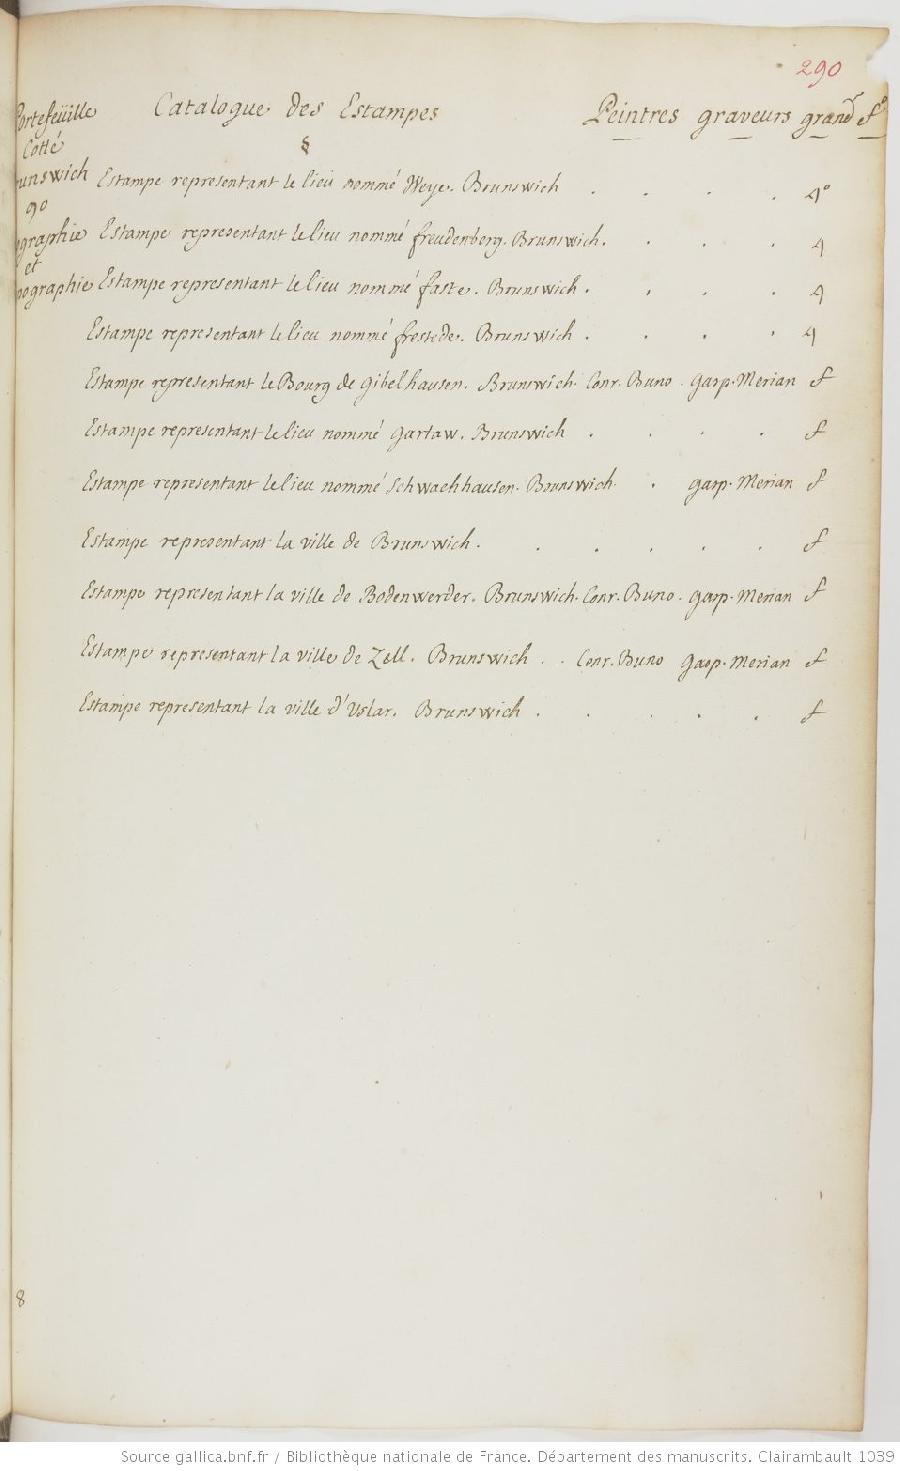 290
Portefeüille Catalogue des Estampes Peintres graveurs grandr fo
Cotté §
unswich Estampe representant le lieu nommé Weye. Brunswich . . . . 4o
90
ographie Estampe representant le lieu nommé freudenberg. Brunswich. . . . 4
et
pographie Estampe representant le lieu nommé faste. Brunswich . . . . 4
Estampe representant le lieu nommé frestede. Brunswich . . . . 4
Estampe representant le Bourg de Gibelhausen. Brunswich. Conr. Buno. Gasp. Merian f
Estampe representant le lieu nommé Gartaw. Brunswich . . . . f
Estampe representant le lieu nommé Schwachhausen. Brunswich. . Gasp. Merian f
Estampe representant la ville de Brunswich. . . . . . f
Estampe representant la ville de Bodenwerder. Brunswich. Conr. Buno. Gasp. Merian f
Estampe representant la ville de Zell. Brunswich . . Conr. Buno Gasp. Merian f
Estampe representant la ville d'Uslar. Brunswich . . . . . f
8
Source gallica.bnf.fr / Bibliothèque nationale de France. Département des manuscrits. Clairambault 1039